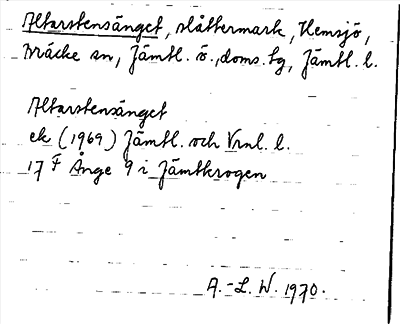 Altarstensänget, slåttermark, Hemsjö,
Bräcke sn, Jämtl. ö. doms. tg, Jämtl. l.
Altarstensänget
ek (1969) Jämtl. och Vrnl. l.
17 F Ånge 9 i Jämtkrogen
A.-L. W. 1970.